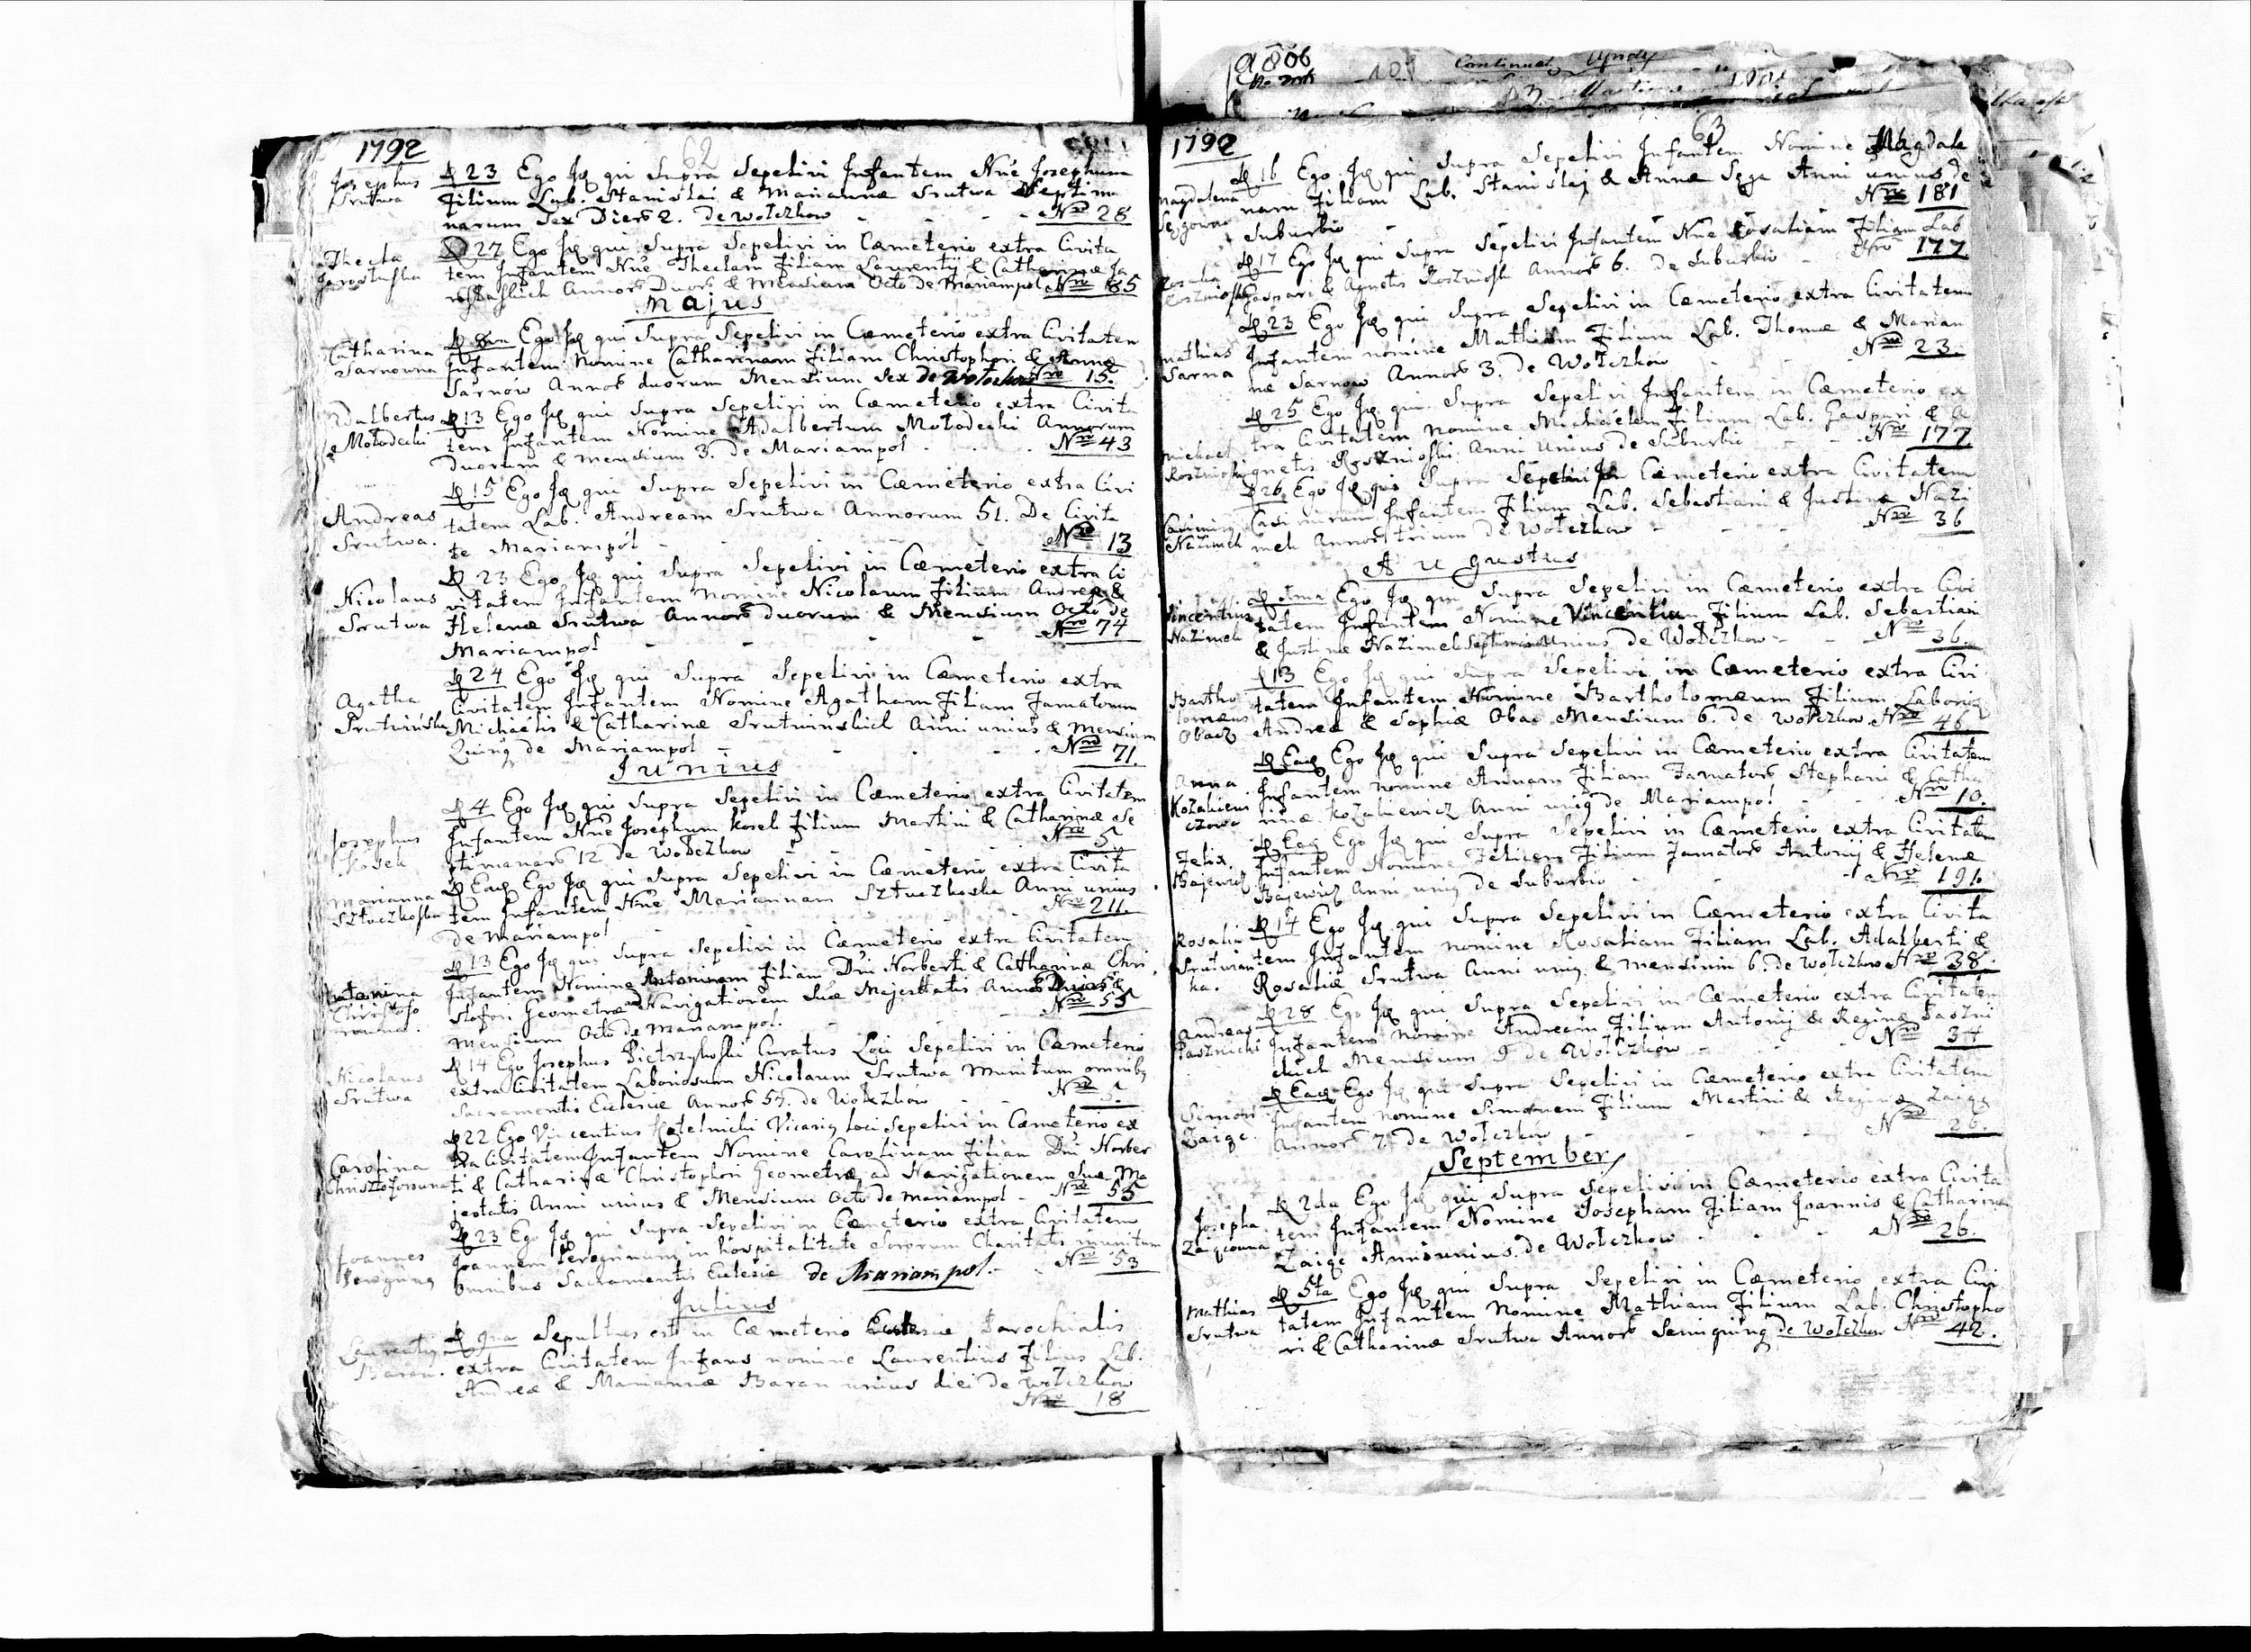 1792
62
Josephus
Srutwa
D 23 Ego Jdę qui Supra Sepelivi Infantem Nñe Josephum
Filium Lab. Stanislai & Mariannæ Srutwa Septima
narum Sex Dier 2. de Wołczkow - - - Nro 28
Thecla
D 27 Ego Jdę qui Supra Sepelivi in Cæmeterio extra Civita
tem Infantem Nñe Theclam Filiam Laurentij & Catharinæ Ja
Annor Duor & Mensium Octo de Mariampol Nro 85
Majus
Catharina
Sarnowna
Ego Jdę qui Supra Sepelivi in Cæmeterio extra Civitatem
Infantem Nomine Catharinam Filiam Christophori & Annæ
Sarnów Annor duorum Mensium Sex de Wołczkow Nro 15.
Adalbertus
Mołodecki
D 13 Ego Jdę qui Supra Sepelivi in Cæmeterio extra Civita
tem Infantem Nomine Adalbertum Mołodecki Annorum
Duorum & Mensium 3. de Mariampol . . . Nro 43
Andreas
Srutwa.
D 15 Ego Jdę qui Supra Sepelivi in Cæmeterio extra Civi
tatem Lab. Andream Srutwa Annorum 51. De Civita
te Mariampol - - Nro 13
Nicolaus
Srutwa
D 23 Ego Jdę qui Supra Sepelivi in Cæmeterio extra Ci
vitatem Infantem Nomine Nicolaum Filium Andreæ &
Helenæ Srutwa Annor duorum & Mensium Octo de
Mariampol - - Nro 74
Agatha
Srutwińska
D 24 Ego Jdę qui Supra Sepelivi in Cæmeterio extra
Civitatem Infantem Nomine Agatham Filiam Famatorum
Michaelis & Catharinæ Srutwinskich Anni unius & Mensium
Quinq de Mariampol - - Nro 71.
Junius
Josephus
Kosek
D 4 Ego Jdę qui Supra Sepelivi in Cæmeterio extra Civitatem
Infantem Nñe Josephum Kosek Filium Martini & Catharinæ Se
ptimanar 12 de Wołczkow - - Nro 5.
Marianna
Sztuczkoska
D Eadę Ego Jdę qui Supra Sepelivi in Cæmeterio extra Civita
tem Infantem Nñe Mariannam Sztuczkoska Anni unius
de Mariampol Nro 211.
Antonina
Christofo
rowna.
D 13 Ego Jdę qui Supra Sepelivi in Cæmeterio extra Civitatem
Infantem Nomine Antoninam Filiam Dni Norberti & Catharinæ Chri
stofori Geometræ ad Navigationem Suæ Majestatis Annor Duor &
Mensium Octo de Mariampol. - - Nro 55
Nicolaus
Srutwa
D 14 Ego Josephus Pietrzykoski Curatus Loci Sepelivi in Cæmeterio
extra Civitatem Laboriosum Nicolaum Srutwa Munitum omnibq
Sacramentis Eclesiæ Annor 55. de Wołczkow - - Nro 5.
Carolina
Christoforowna
D 22 Ego Vincentius Kotelnicki Vicarig loci Sepelivi in Cæmeterio ex
tra Civitatem Infantem Nomine Carolinam Filiam Dni Norber
ti & Catharinæ Christophori Geometræ ad Navigationem Suæ Ma
jestatis Anni unius & Mensium Octo de Mariampol - Nro 55
Joannes
Peregrinq
D 23 Ego Jdę qui Supra Sepelivi in Cæmeterio extra Civitatem
Joannem Peregrinum in hospitalitate Sororum Charitatis munitum
omnibus Sacramentis Eclesiæ de Mariampol. - Nro 53
Julius
Laurentig
Baran.
Sepultus est in Cæmeterio Eclesiæ Parochialis
extra Civitatem Infans nomine Laurentius Filius Lab.
Andreæ & Mariannæ Baran unius diei de Wołczkow
Nro 18
1792
63
Magdalena
D 16 Ego Jdę qui Supra Sepelivi Infantem Nomine Magdale
nam Filiam Lab. Stanislaj & Annæ Sęga Anni unius de
Suburbio - - Nro 181
D 17 Ego Jdę qui Supra Sepelivi Infantem Nñe Rosaliam Filiam Lab
Gaspari & Agnetis Rozniosk Annor 6. de Suburbio - Nro 177.
Mathias
Sarna
D 23 Ego Jdę qui Supra Sepelivi in Cæmeterio extra Civitatem
Infantem nomine Mathiam Filium Lab. Thomæ & Marian
næ Sarnow Annor 3. de Wołczkow Nro 23.
Michael
D 25 Ego Jdę qui Supra Sepelivi Infantem in Cæmeterio ex
tra Civitatem nomine Michaelem Filium Lab. Gaspari & A
gnetis Anni Unius de Suburbio Nro 177.
Nazimek
D 26 Ego Jdę qui Supra Sepelivi in Cæmeterio extra Civitatem
Casimirum Infantem Filium Lab. Sebastiani & Justinæ Nazi
mek Annor trium de Wołczkow - - Nro 36
Augustus
Vincentius
Nazimek
D Ima Ego Jdę qui Supra Sepelivi in Cæmeterio extra Civi
tatem Infantem Nomine Vincentium Filium Lab. Sebastiani
& Justinæ Nazimek Septimanæ Unius de Wołczkow - - Nro 36.
Bartho
lomæus
Obacz
D 13 Ego Jdę qui Supra Sepelivi in Cæmeterio extra Civi
tatem Infantem Nomine Bartholomæum Filium Laborios
Andreæ & Sophiæ Obac Mensium 6. de Wołczkow Nro 46.
Anna
Kozakiewi
czowa
D Eadę Ego Jdę qui Supra Sepelivi in Cæmeterio extra Civitatem
Infantem nomine Annam Filiam Famator Stephani & Catha
rinæ Kozakiewicz Anni uniq de Mariampol - - Nro 10.
Felix
Bajewicz
D Eadę Ego Jdę qui Supra Sepelivi in Cæmeterio extra Civitatem
Infantem Nomine Felicem Filium Famator Antonij & Helenæ
Bajewicz Anni uniq de Suburbio - - Nro 191.
Rosalia
Srutwian
ka.
D 14 Ego Jdę qui Supra Sepelivi in Cæmeterio extra Civita
tem Infantem nomine Rosaliam Filiam Lab. Adalberti &
Rosaliæ Srutwa Anni uniq & mensium 6. de Wołczkow Nro 38.
Andreas
Pasznicki
D 28 Ego Jdę qui Supra Sepelivi in Cæmeterio extra Civitatem
Infantem nomine Andream Filium Antonij & Reginæ Paszni
ckich Mensium 9 de Wołczkow - - Nro 34
Simon
Zaiąc.
D Eadę Ego Jdę qui Supra Sepelivi in Cæmeterio extra Civitatem
Infantem nomine Simonem Filium Martini & Reginæ Zaiąc
Annor 7. de Wołczkow - - Nro 26.
September
Josepha
Zaiącowna
D 2da Ego Jdę qui Supra Sepelivi in Cæmeterio extra Civita
tem Infantem Nomine Josepham Filiam Joannis & Catharinæ
Zaiąc Anni unius de Wołczkow - - Nro 26.
Mathias
Srutwa
D 5ta Ego Jdę qui Supra Sepelivi in Cæmeterio extra Civi
tatem Infantem Nomine Mathiam Filium Lab. Christopho
ri & Catharinæ Srutwa Annor Semiquinq de Wołczkow Nro 42.